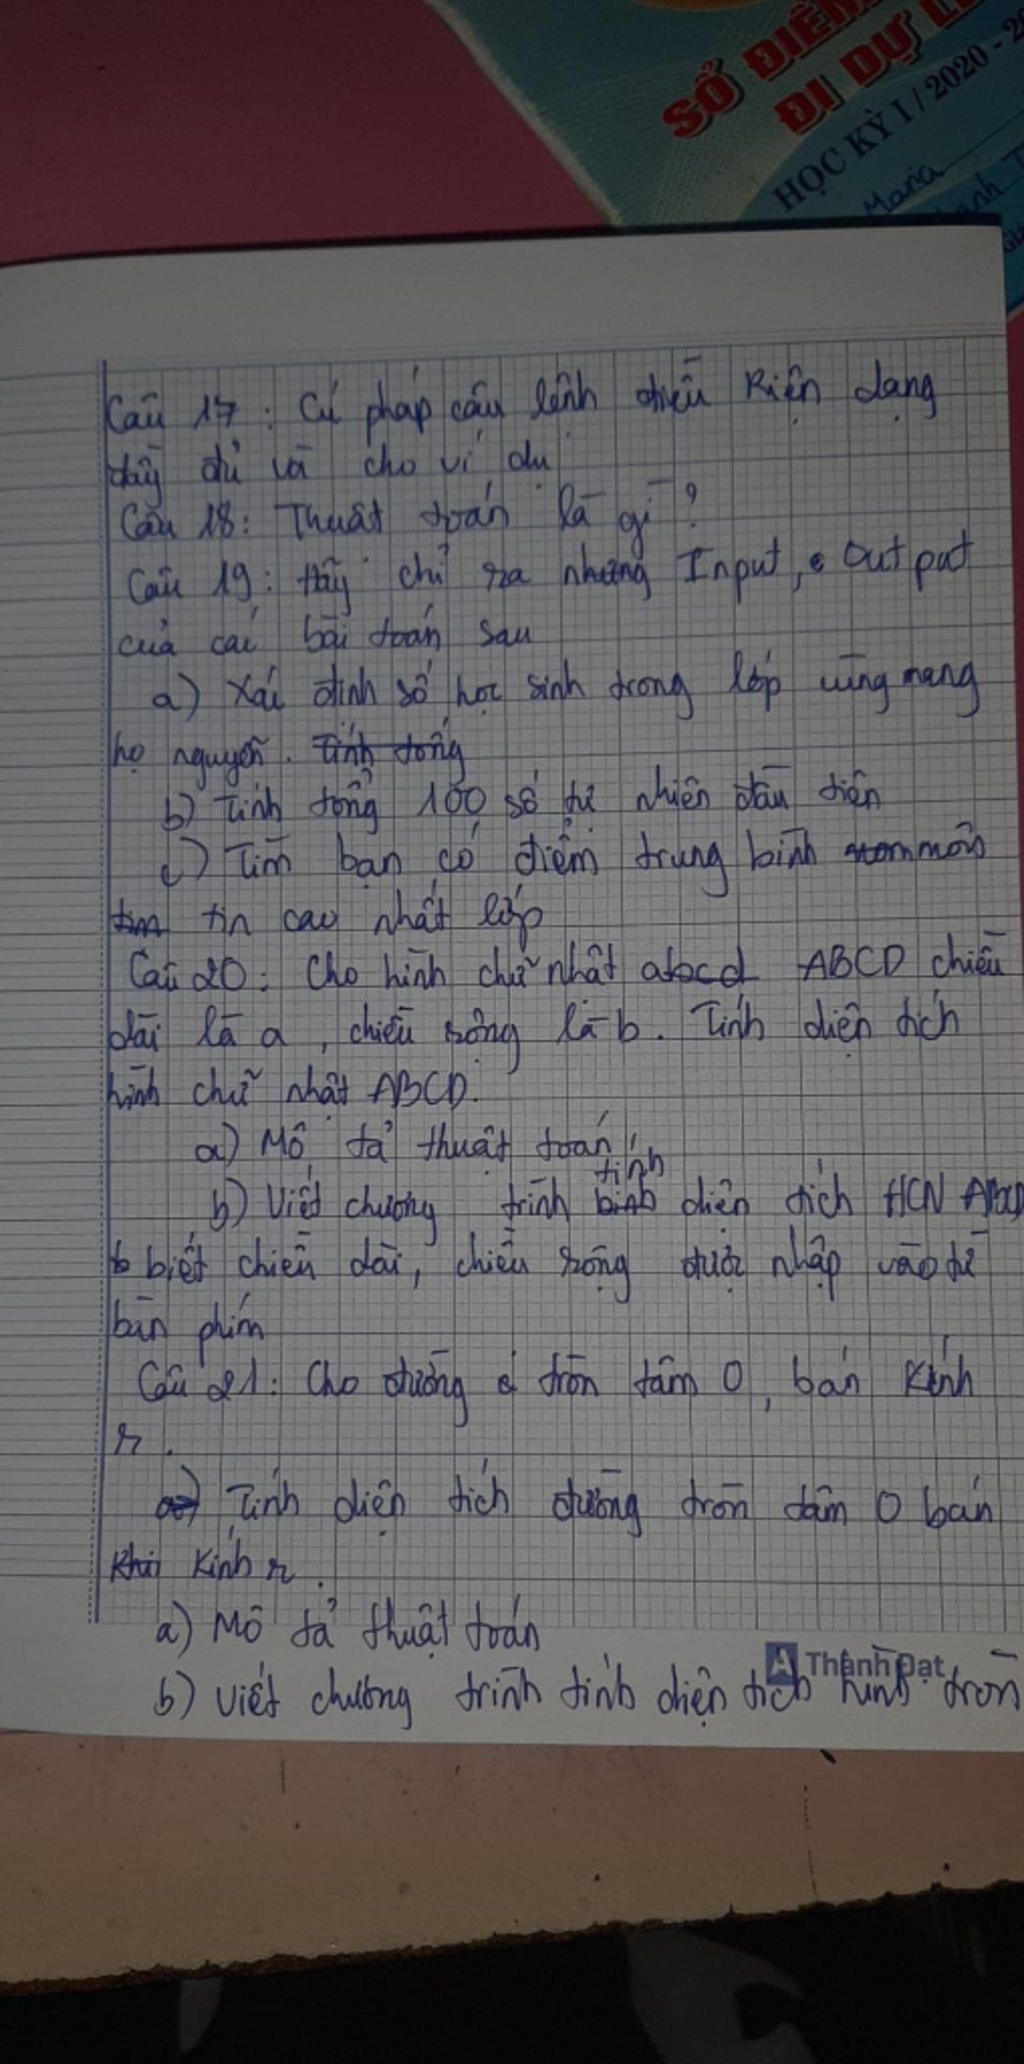 SỔ ĐIỂM
ĐI DỰ L
HỌC KỲ I / 2020 - 20
Maria
Câu 17 : Cú pháp câu lệnh điều kiện dạng
đầy đủ và cho ví dụ
Câu 18: Thuật toán là gì ?
Câu 19: Hãy chỉ ra những Input, Output
của các bài toán sau
a) Xác định số học sinh trong lớp cùng mang
họ nguyễn. Tính tổng
b) Tính tổng 100 số tự nhiên đầu tiên
c) Tìm bạn có điểm trung bình môn
tin cao nhất lớp
Câu 20: Cho hình chữ nhật abcd ABCD chiều
dài là a, chiều rộng là b. Tính diện tích
hình chữ nhật ABCD.
a) Mô tả thuật toán
tính
b) Viết chương trình bình diện tích HCN ABCD
biết chiều dài, chiều rộng được nhập vào từ
bàn phím
Câu 21: Cho đường tròn tâm O, bán kính
r.
a) Tính diện tích đường tròn tâm O bán
kính r.
a) Mô tả thuật toán
b) Viết chương trình tính diện tích hình tròn
Thành Đạt